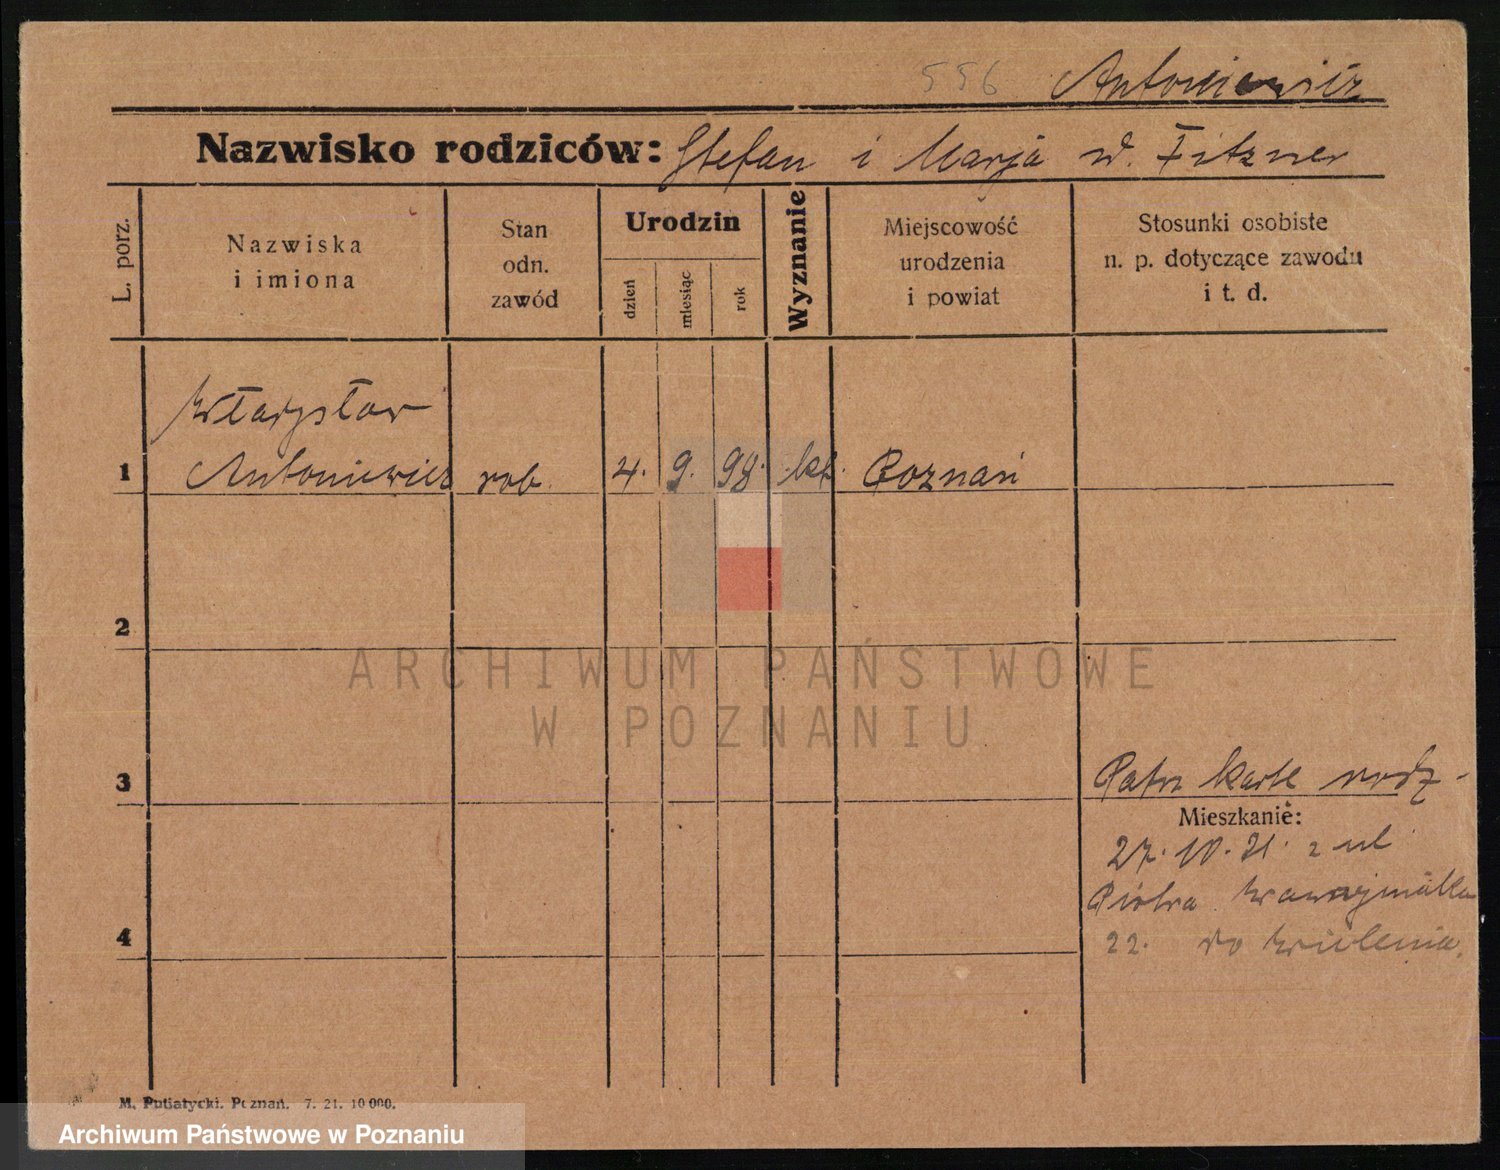 556 Antoniewicz
Nazwisko rodziców: Stefan i Marja d. Fitzner
L. porz.
Nazwiska
i imiona
Stan
odn.
zawód
Urodzin
dzień
miesiąc
rok
Wyznanie
Miejscowość
urodzenia
i powiat
Stosunki osobiste
n. p. dotyczące zawodu
i t. d.
Władysław
1 Antoniewicz rob. 4. 9. 98. kt. Poznań
2
ARCHIWUM PAŃSTWOWE
W POZNANIU
3
Patrz kartę rodz.
Mieszkanie:
27. 10. 21. z ul
Piotra Wawrzyniaka
4
22. do Wielenia.
M. Putiatycki. Poznań. 7. 21. 10 000.
Archiwum Państwowe w Poznaniu